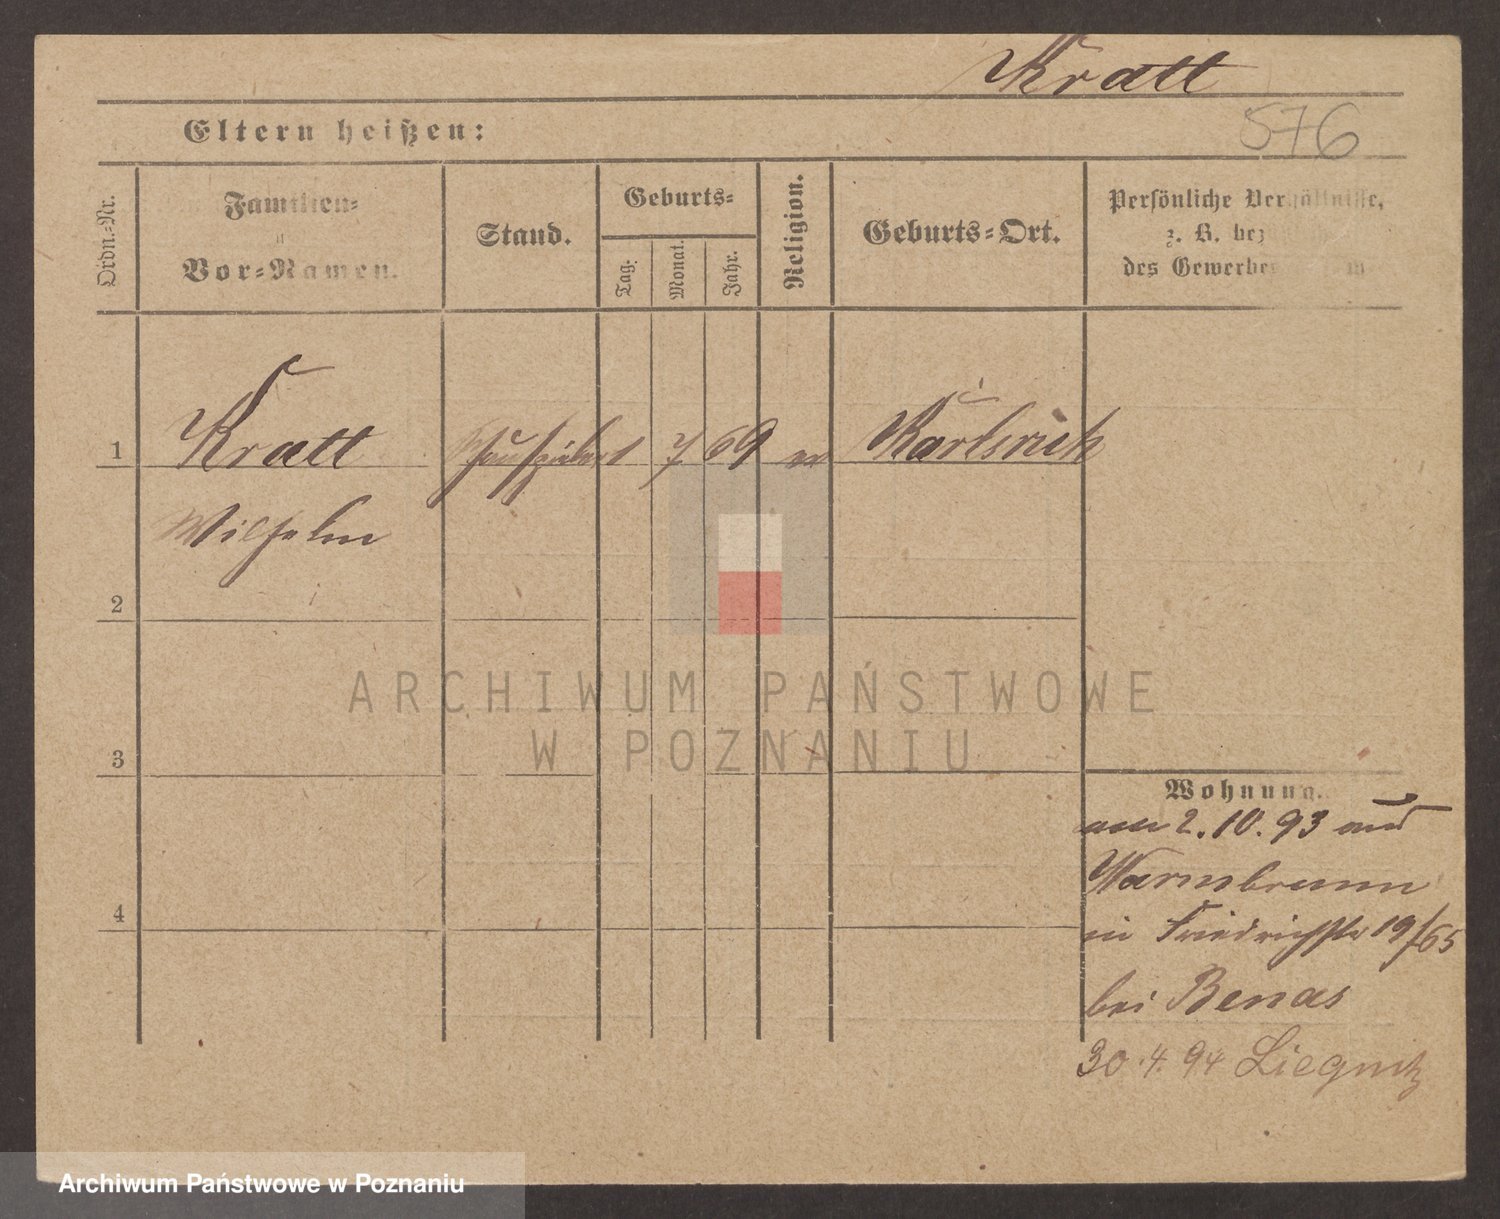 Kratt
576
Eltern heißen:
Ordn.-Nr.
Familien-
u
Vor-Namen.
Stand.
Geburts-
Tag:
Monat.
Jahr.
Religion.
Geburts-Ort.
Persönliche Verhältnisse,
z. B. bez
des Gewerbe
1
Kratt
Schauspieler
1 7 69 ev
Karlsruh
Wilhelm
2
3
4
Wohnung.
am 2. 10. 93 aus
Warmbrunn
in Friedrichstr 19/65
bei Benas
30. 4. 94 Liegnitz
ARCHIWUM PAŃSTWOWE
W POZNANIU
Archiwum Państwowe w Poznaniu